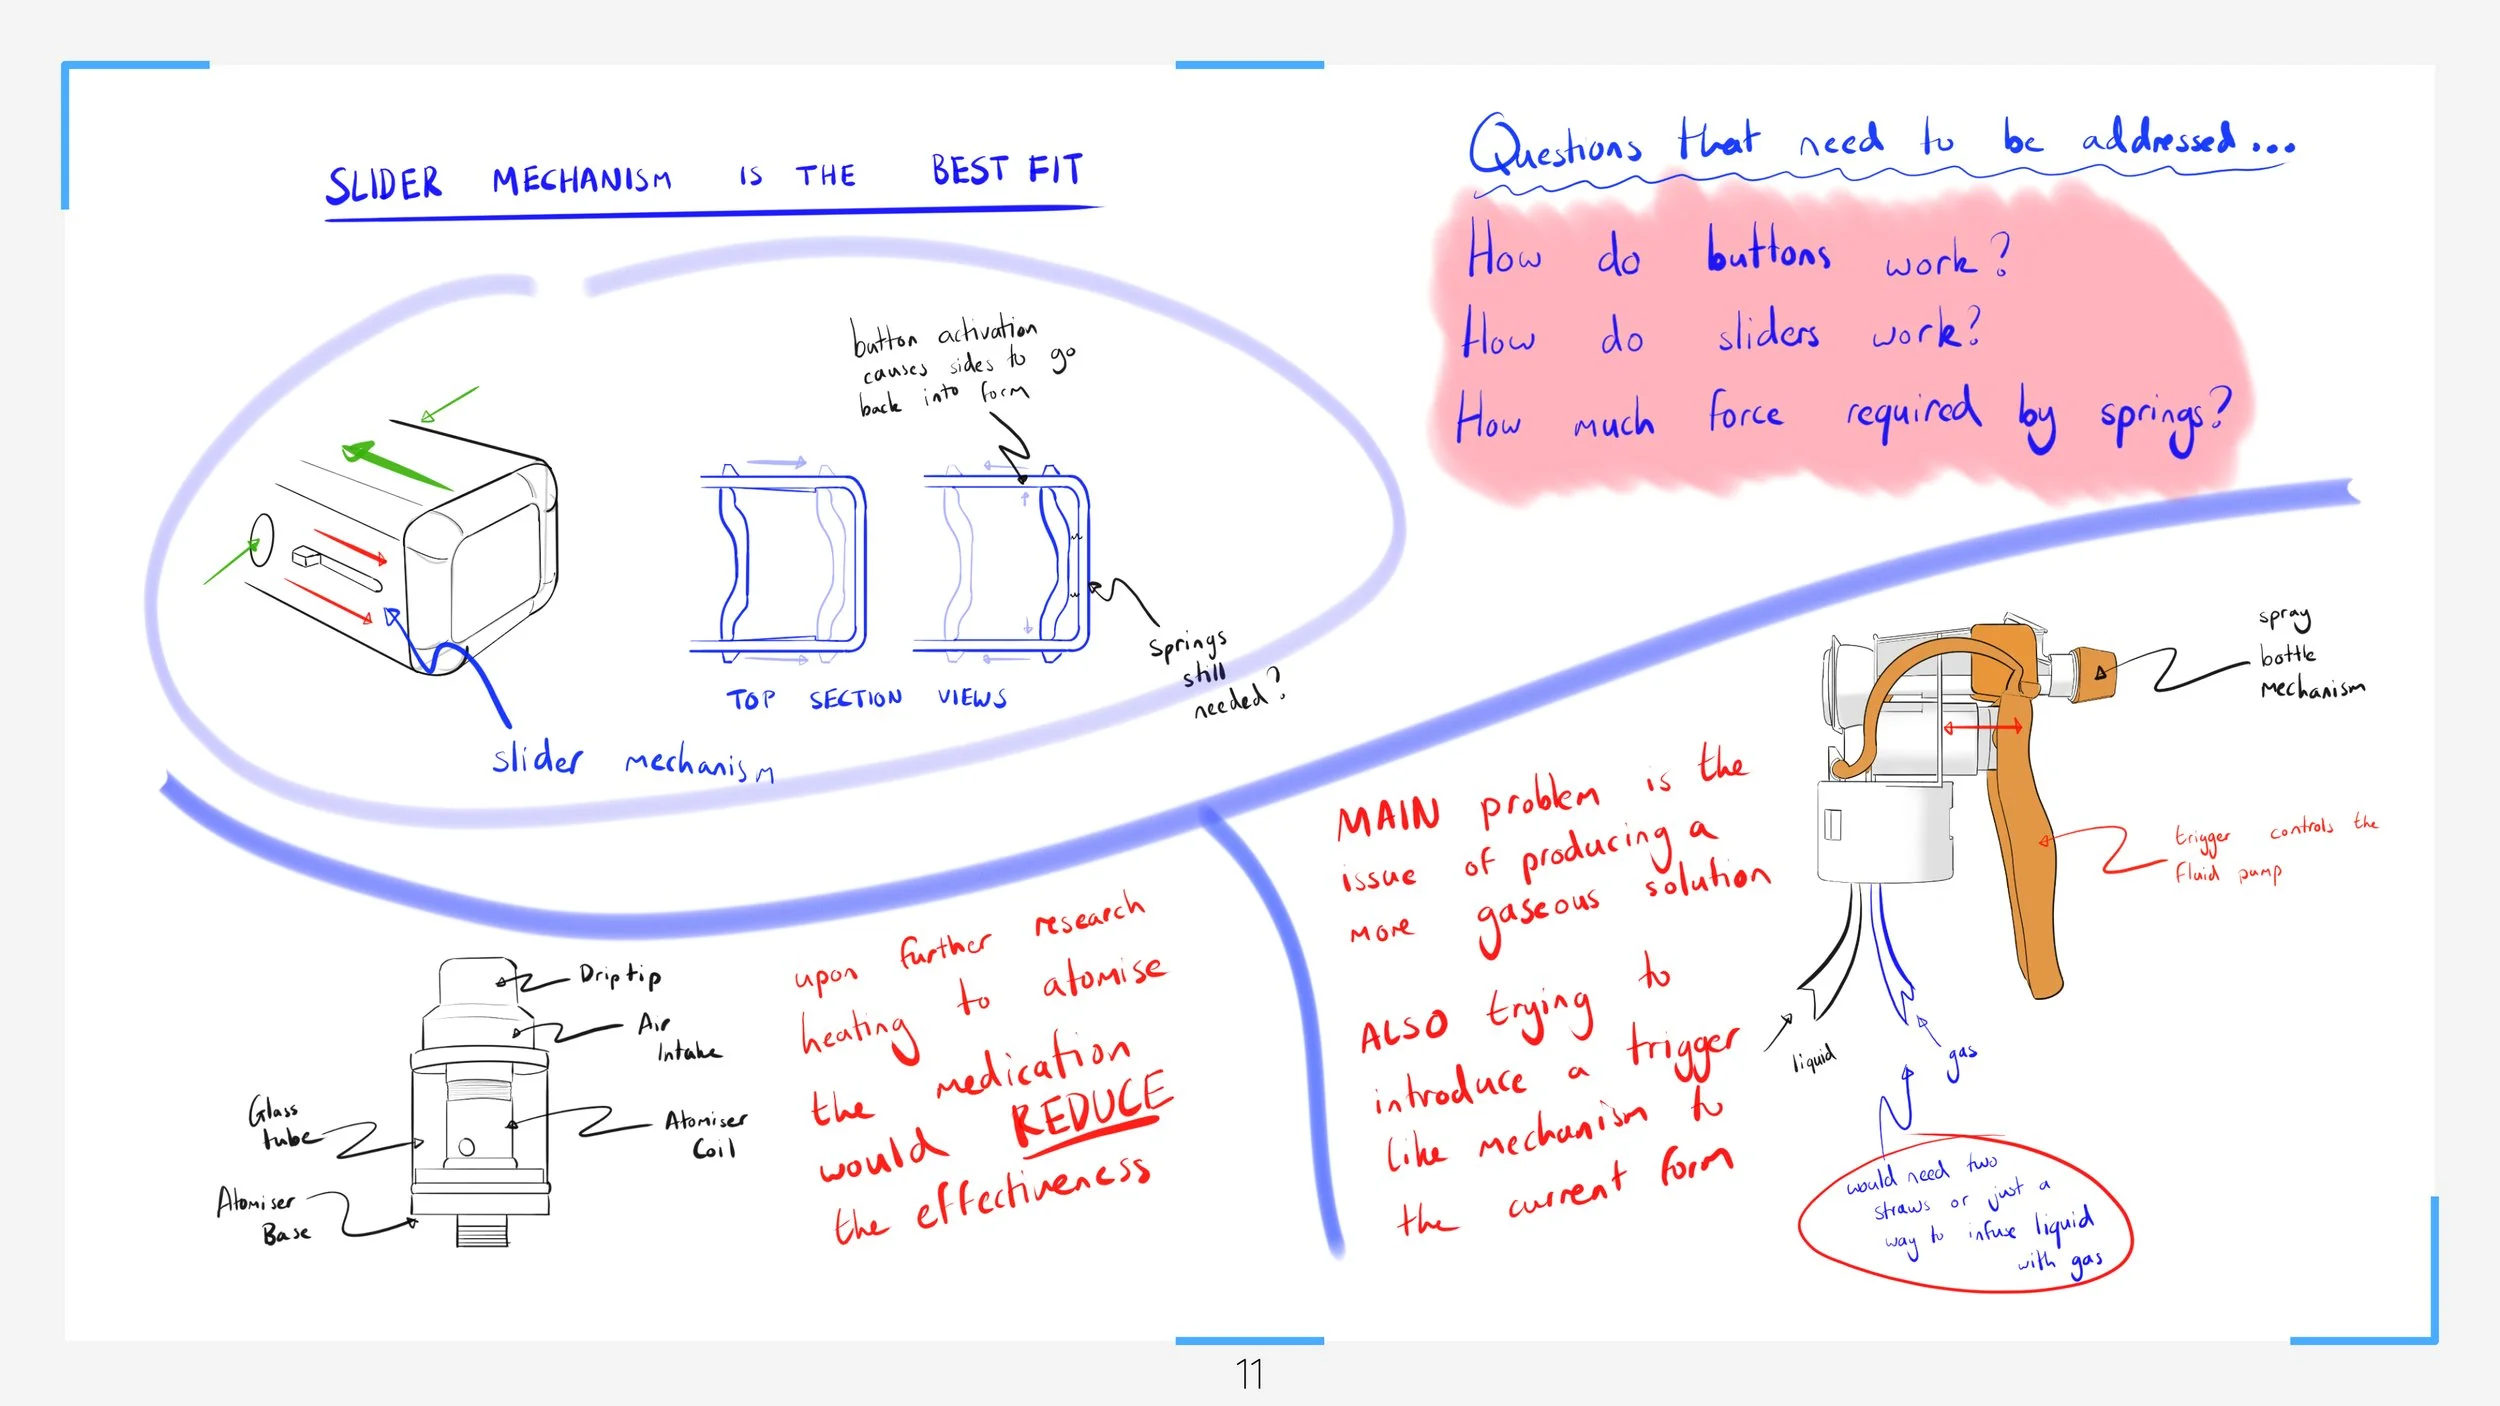 SLIDER MECHANISM IS THE BEST FIT
button activation
causes sides to go
back into form
Springs
still
needed?
TOP SECTION VIEWS
slider mechanism
Questions that need to be addressed...
How do buttons work?
How do sliders work?
How much force required by springs?
Drip tip
Air
Intake
Glass
tube
Atomiser
Coil
Atomiser
Base
upon further research
heating to atomise
the medication
would REDUCE
the effectiveness
MAIN problem is the
issue of producing a
more gaseous solution
ALSO trying to
introduce a trigger
like mechanism to
the current form
spray
bottle
mechanism
trigger controls the
fluid pump
liquid
gas
would need two
straws or just a
way to infuse liquid
with gas
11